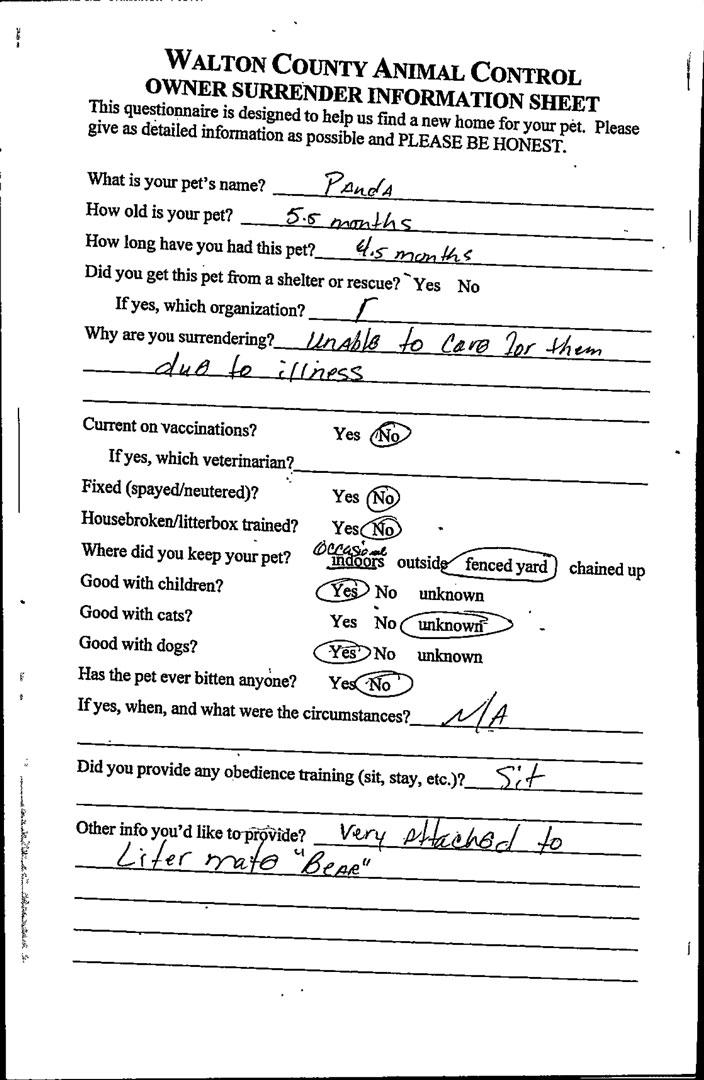 WALTON COUNTY ANIMAL CONTROL
OWNER SURRENDER INFORMATION SHEET
This questionnaire is designed to help us find a new home for your pet. Please
give as detailed information as possible and PLEASE BE HONEST.
What is your pet's name? Panda
How old is your pet? 5.5 months
How long have you had this pet? 4.5 months
Did you get this pet from a shelter or rescue? Yes No
If yes, which organization?
Why are you surrendering? Unable to Care for them
due to illness
Current on vaccinations? Yes No
If yes, which veterinarian?
Fixed (spayed/neutered)? Yes No
Housebroken/litterbox trained? Yes No
Occasional
Where did you keep your pet? indoors outside fenced yard chained up
Good with children? Yes No unknown
Good with cats? Yes No unknown
Good with dogs? Yes No unknown
Has the pet ever bitten anyone? Yes No
If yes, when, and what were the circumstances? N/A
Did you provide any obedience training (sit, stay, etc.)? Sit
Other info you'd like to provide? Very attached to
Liter mate "Bear"